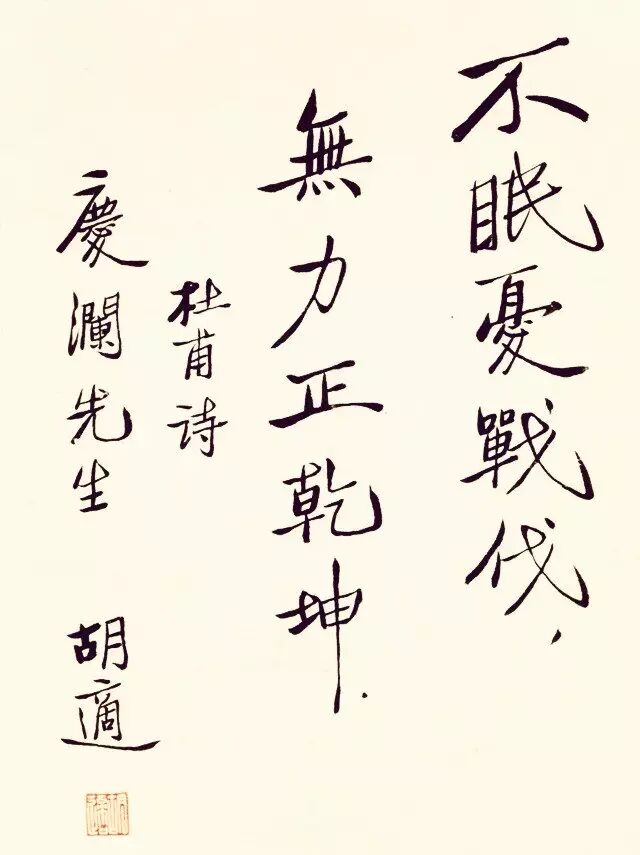 不眠憂戰伐，
無力正乾坤.
杜甫诗
慶瀾先生
胡適